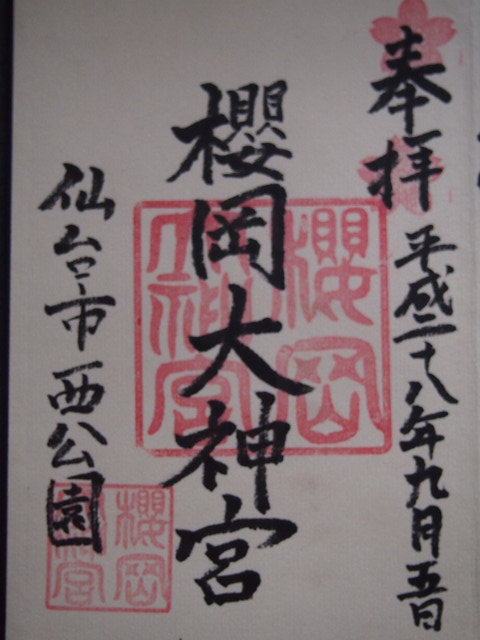 奉拝 平成二十八年九月五日
櫻岡大神宮
仙台市西公園
櫻岡大神宮
櫻岡神宮